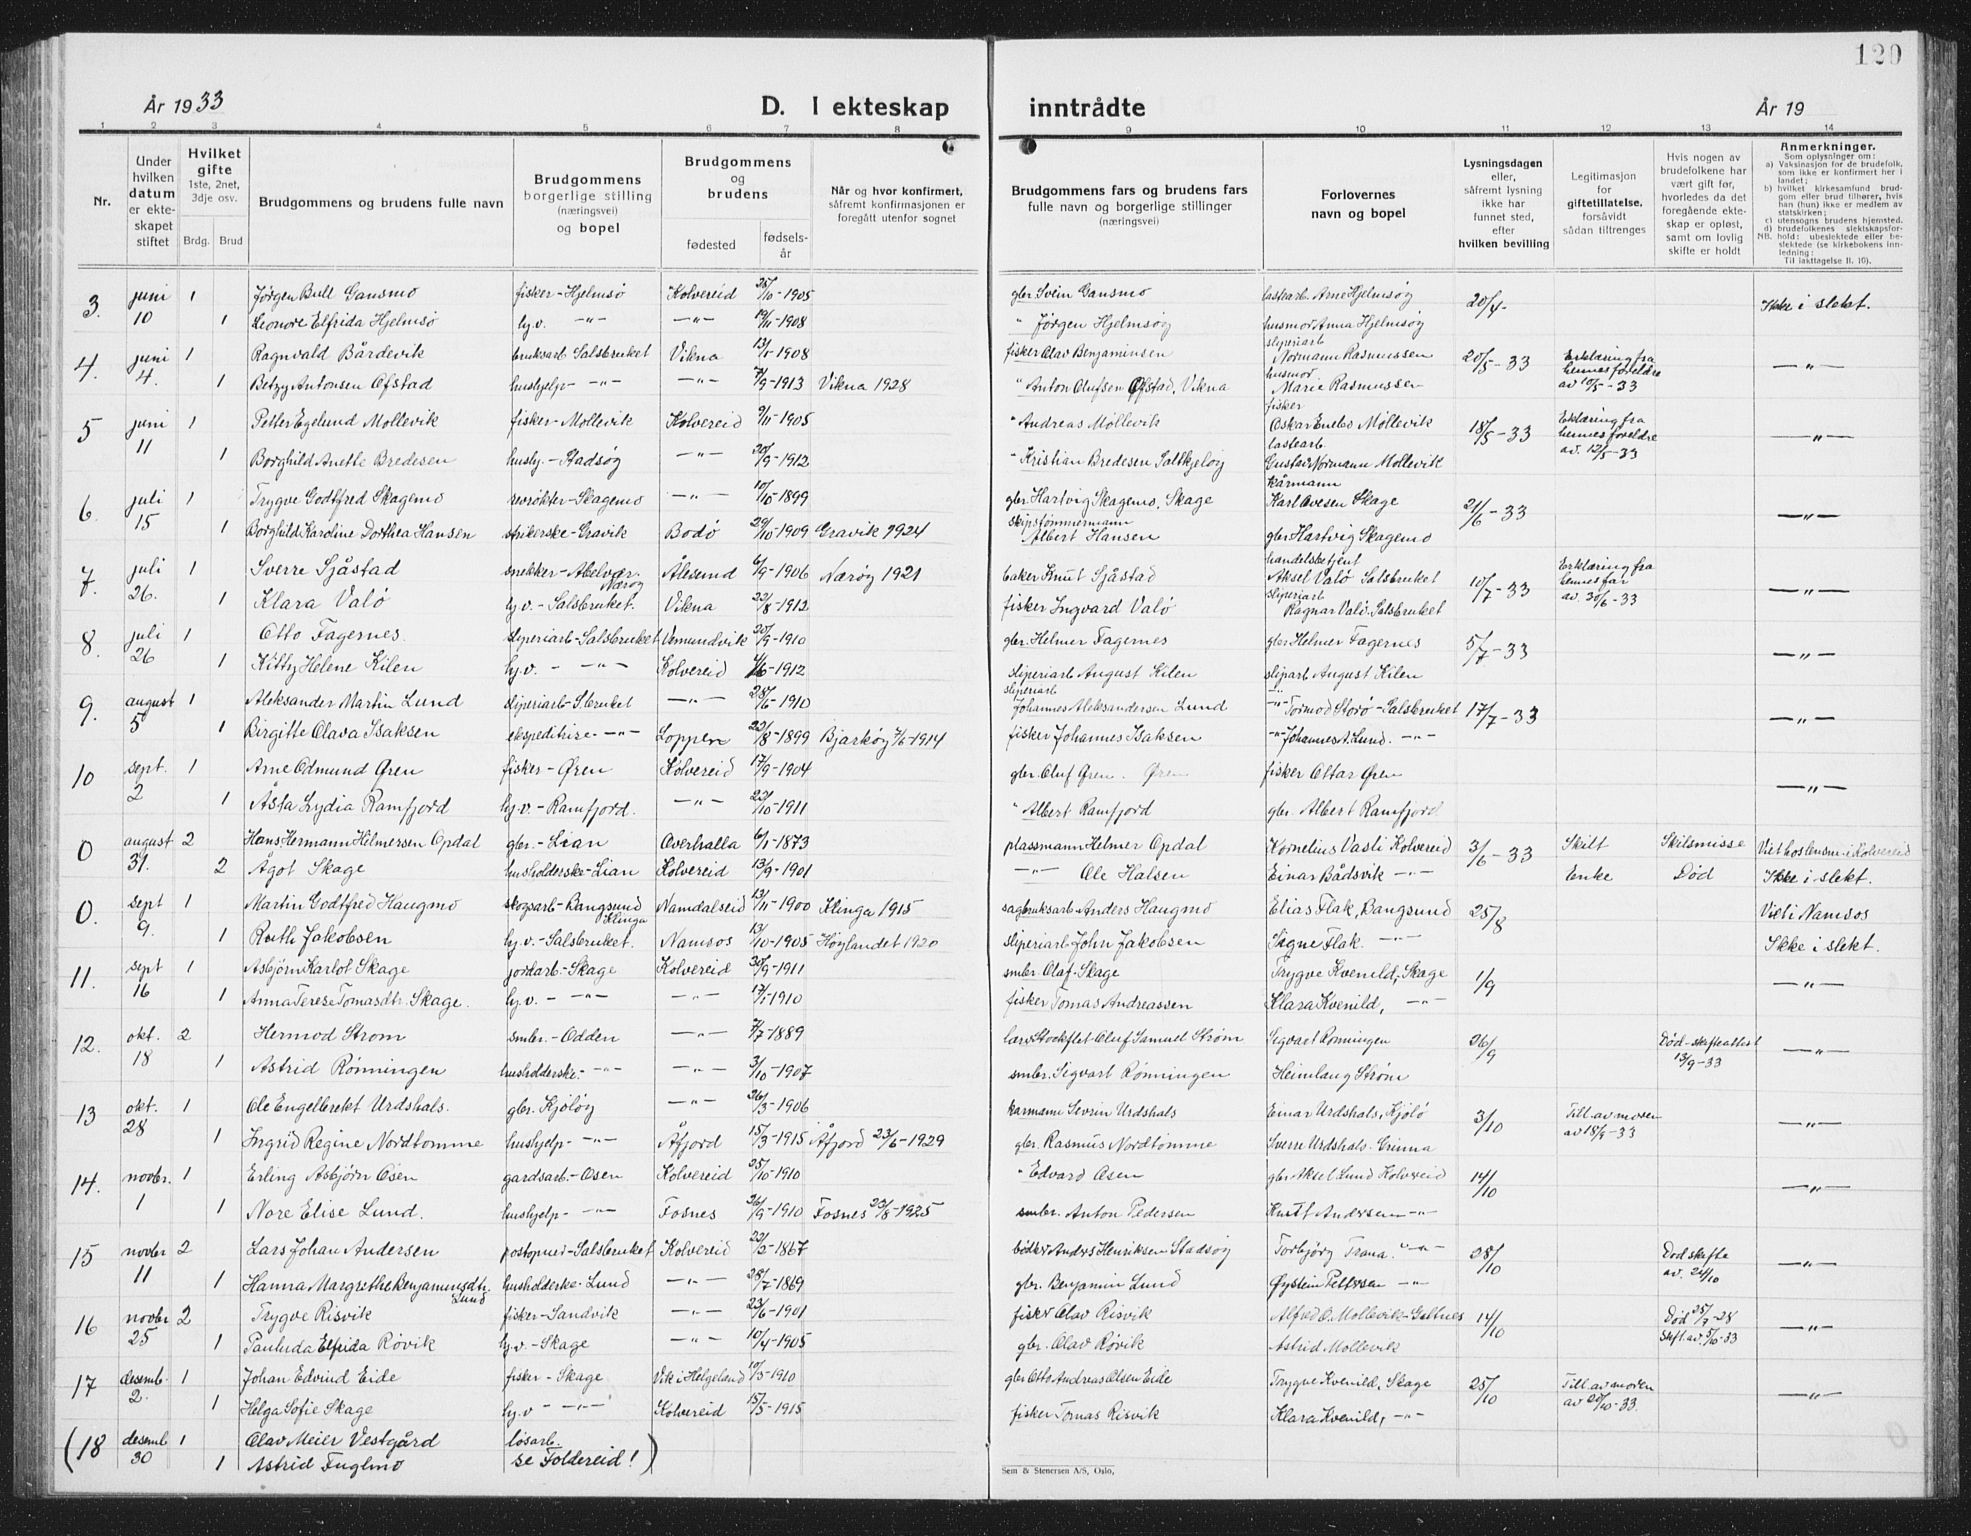 120
År 1933 D. I ekteskap inntrådte År 19
1 2 3 4 5 6 7 8 9 10 11 12 13 14
Nr.
Under hvilken datum er ekteskapet stiftet
Hvilket gifte 1ste, 2net, 3dje osv.
Brdg. Brud
Brudgommens og brudens fulle navn
Brudgommens borgerlige stilling (næringsvei) og bopel
Brudgommens og brudens
fødested fødselsår
Når og hvor konfirmert, såfremt konfirmasjonen er foregått utenfor sognet
Brudgommens fars og brudens fars fulle navn og borgerlige stillinger (næringsvei)
Forlovernes navn og bopel
Lysningsdagen eller, såfremt lysning ikke har funnet sted, efter hvilken bevilling
Legitimasjon for giftetillatelse, forsåvidt sådan tiltrenges
Hvis nogen av brudefolkene har vært gift før, hvorledes da det foregående ekteskap er opløst, samt om lovlig skifte er holdt
Anmerkninger.
Som oplysninger om:
a) Vaksinasjon for de brudefolk, som ikke er konfirmert her i landet;
b) hvilket kirkesamfund brudgom eller brud tilhører, hvis han (hun) ikke er medlem av statskirken;
c) utensogns brudens hjemsted.
d) brudefolkenes slektskapsforhold: ubeslektede eller beslektede (se kirkebokens innledning:
NB. Til iakttagelse II. 10).
3. juni 10 1 Jørgen Bull Gansmo fisker - Hjelmsö Kolvereid 25/10-1905 gbr. Svein Gansmo lastearb. Arne Hjelmsøg 20/4- Ikke i slekt.
1 Leonore Elfrida Hjelmsö hj.v. -"- -"- 19/11-1908 " Jørgen Hjelmsøg husmor Anna Hjelmsøg
4. juni 4. 1 Ragnvald Bårdevik bruksarb Salsbruket Vikna 13/1-1908 fisker Olav Benjaminsen sliperiarb Normann Rasmussen 20/5-33 Erklæring fra hennes foreldre av 10/5-33 -"-
1 Betzy Antonsen Ofstad hushjelp -"- -"- 7/9-1913 Vikna 1928 " Anton Olufsen Ofstad, Vikna husmor Marie Rasmussen
5 juni 11 1 Petter Egelund Mollevik fisker - Mollevik Kolvereid 9/11-1905 " Andreas Mollevik fisker Oskar Enebo Mollevik 18/5-33 Erklæring fra hennes foreldre av. 12/5-33 -"-
1 Borghild Anette Bredesen hushj. - Stadsøg -"- 20/9-1912 " Kristian Bredesen Saltkjeløg lastearb. Gustav Normann Mollevik
6. juli 15 1 Trygve Godtfred Skagemo revrøkter - Skagemo -"- 10/10-1899 gbr. Hartvig Skagemo, Skage kårmann Karl Avesen Skage 21/6-33 -"-
1 Borghild Karoline Dorthea Hansen strikerske - Gravik Bodö 29/10-1909 Gravik 1924 skipstømmermann Albert Hansen gbr Hartvig Skagemo
7. juli 26. 1 Sverre Sjåstad snekker - Abelvær Nærøy Ålesund 6/9-1906 Nærøy 1921 baker Knut Sjåstad handelsbetjent Aksel Valö Salsbruket 10/7-33 Erklæring fra hennes far av. 30/6-33 -"-
1 Klara Valö hj.v. - Salsbruket. Vikna 22/8-1912 fisker Ingvard Valö sliperiarb Ragnar Valö. Salsbruket
8. juli 26 1 Otto Fagernes. sliperiarb - Salsbruket Vemundvik 20/9-1910 gbr. Helmer Fagernes gbr. Helmer Fagernes 5/7-33 -"-
1 Kitty Helene Kilen hj.v. - -"- Kolvereid 4/6-1912 sliperiarb August Kilen sliparb August Kilen
9. august 5 1 Aleksander Martin Lund sliperiarb - S.bruket -"- 28/6-1910 sliperiarb Johannes Aleksandersen Lund -"- Tormod Storö - Salsbruket 17/7-33 -"-
1 Birgitte Olava Isaksen ekspeditrise - -"- Loppen 22/8-1899 Bjarköy 7/6-1914 fisker Johannes Isaksen -"- Johannes A. Lund. -"-
10 sept. 2 1 Arne Odmund Øren fisker - Øren Kolvereid 17/9-1904 gbr. Oluf Øren. Øren fisker Ottar Øren -"-
1 Åsta Lydia Ramfjord hj.v. - Ramfjord. -"- 22/10-1911 " Albert Ramfjord gbr. Albert Ramfjord
0 august 31. 2 Hans Hermann Helmersen Opdal gbr. - Lian Overhalla 6/1-1873 plassmann Helmer Opdal Kornelius Vasli Kolvereid 3/6-33 Skilt Skilsmisse Viet hos lensm. i Kolvereid
2 Ågot Skage husholderske - Lian Kolvereid 13/9-1901 -"- Ole Halsen Einar Bådsvik -"- Enke Död Ikke i slekt.
0. sept 9. 1 Martin Godtfred Haugmo skogsarb - Bangsund Klinga Namdalseid 13/11-1900 Klinga 1915 sagbruksarb Anders Haugmo Elias Flak, Bangsund 25/8 Viet i Namsos
1 Ruth Jakobsen hj.v. - Salsbruket. Namsos 13/10-1905 Höylandet 1920 sliperiarb John Jakobsen Signe Flak. -"- Ikke i slekt.
11. sept 16 1 Asbjörn Karlot Skage jordarb. - Skage Kolvereid 30/9-1911 smbr. Olaf Skage Trygve Kvenild, Skage 1/9 -"-
1 Anna Terese Tomasdtr. Skage. hj.v. - -"- -"- 17/1-1910 fisker Tomas Andreassen Klara Kvenild, -"-
12. okt. 18 2 Hermod Strøm smbr. - Odden -"- 7/7-1889 lærer Stockflet Oluf Samuel Strøm Sigvart Rönningen 26/9 Död - skifteattest 13/9-33 -"-
1 Astrid Rönningen husholderske. - -"- -"- 3/10-1907 smbr. Sigvart Rönningen Heimlaug Ström
13 okt. 28 1 Ole Engelbrekt Urdshals. gbr. Kjölöy -"- 26/3-1906 kårmann Sevrin Urdshals Einar Urdshals, Kjölö 3/10 Till. av moren av 18/9-33 -"-
1 Ingrid Regine Nordtömme hushjelp - -"- Åfjord 15/3-1915 Åfjord 23/6-1929 gbr. Rasmus Nordtömme Sverre Urdshals.
14. novbr. 1 1 Erling Asbjörn Osen gårdsarb. - Osen Kolvereid 25/10-1910 " Edvard Osen gbr. Aksel Lund Kolvereid 14/10 -"-
1 Nore Elise Lund. hushjelp - -"- Fosnes 26/9-1910 Fosnes 23/8-1925 smbr. Anton Pedersen Knutt Andersen -"-
15 novbr 11 2 Lars Johan Andersen postopner - Salsbruket Kolvereid 22/2-1867 bödker Andrs Henriksen Stadsöy Torbjörg Trana. -"- 28/10 Död skifte av. 24/10 -"-
1 Hanna Margrethe Benjaminsdtr. Lund husholderske - Lund -"- 28/7-1869 gbr. Benjamin Lund Øystein Pettersen -"-
16 novbr 25 2 Trygve Risvik fisker - Sandvik -"- 23/6-1901 fisker Olav Risvik Alfred O. Mollevik - Geitnes 14/10 Död 25/7-28 Skift. av 5/10-33 -"-
1 Pauluda Elfrida Rövik hj.v. - Skage -"- 10/4-1905 gbr. Olav Rövik Astrid Mollevik
17 desemb. 2. 1 Johan Edvind Eide fisker - Skage Vik i Helgeland 10/3-1910 gbr Otto Andreas Olsen Eide Trygve Kvenild, Skage 25/10 Till. av moren av 20/10-33. -"-
1 Helga Sofie Skage hj.v - -"- Kolvereid 15/5-1915 fisker Tomas Risvik Klara Kvenild, -"-
(18 desemb 30 1 Olav Meier Vestgård løsarb.
1 Astrid Fuglmo se Foldereid! )
Sem & Stenersen A/S, Oslo.